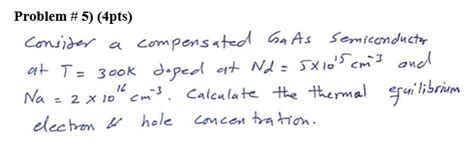 Problem # 5) (4pts)
Consider a compensated GaAs semiconductor
at T = 300k doped at Nd = 5x10¹⁵ cm⁻³ and
Na = 2 x 10¹⁶ cm⁻³. Calculate the thermal equilibrium
electron & hole concentration.